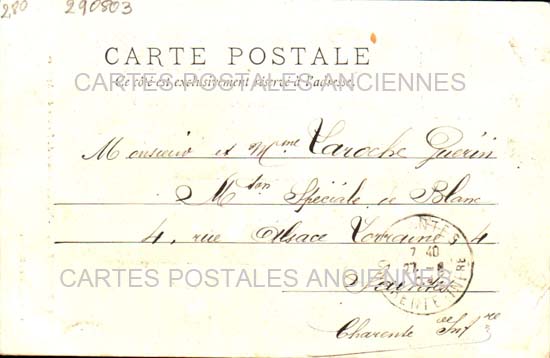 2,80 290803
CARTE POSTALE
Ce côté est exclusivement réservé à l'adresse.
CARTES POSTALES ANCIENNES
Monsieur et Mme Laroche Guérin
Mson Spéciale de Blanc
4, rue Alsace Lorraine 4
CARTES POSTALES ANCIENNES
Saintes
Charente Infre
7 40